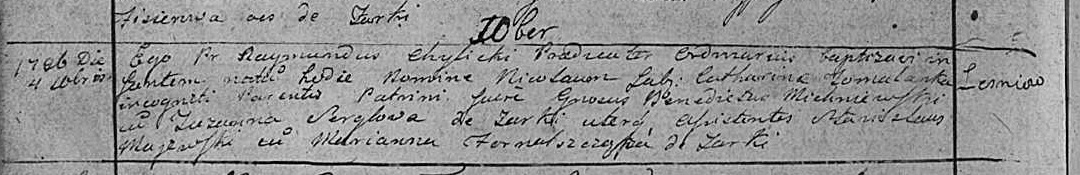 de Zarki
10ber
1786 Die 4 10bris Ego Pr Raymundus Chylicki Prædicater Ordinarius baptizavi in
fantem natũ hodie Nomine Nicolaum Lab: Catharina
incogniti Parentis Patrini fuere Gnosus Benedictus Michniewski
cũ Zuzanna Serglowa de Zarki uterq Asistentes Stanislaus
Majewski cũ Marianna de Zarki
Lesniow